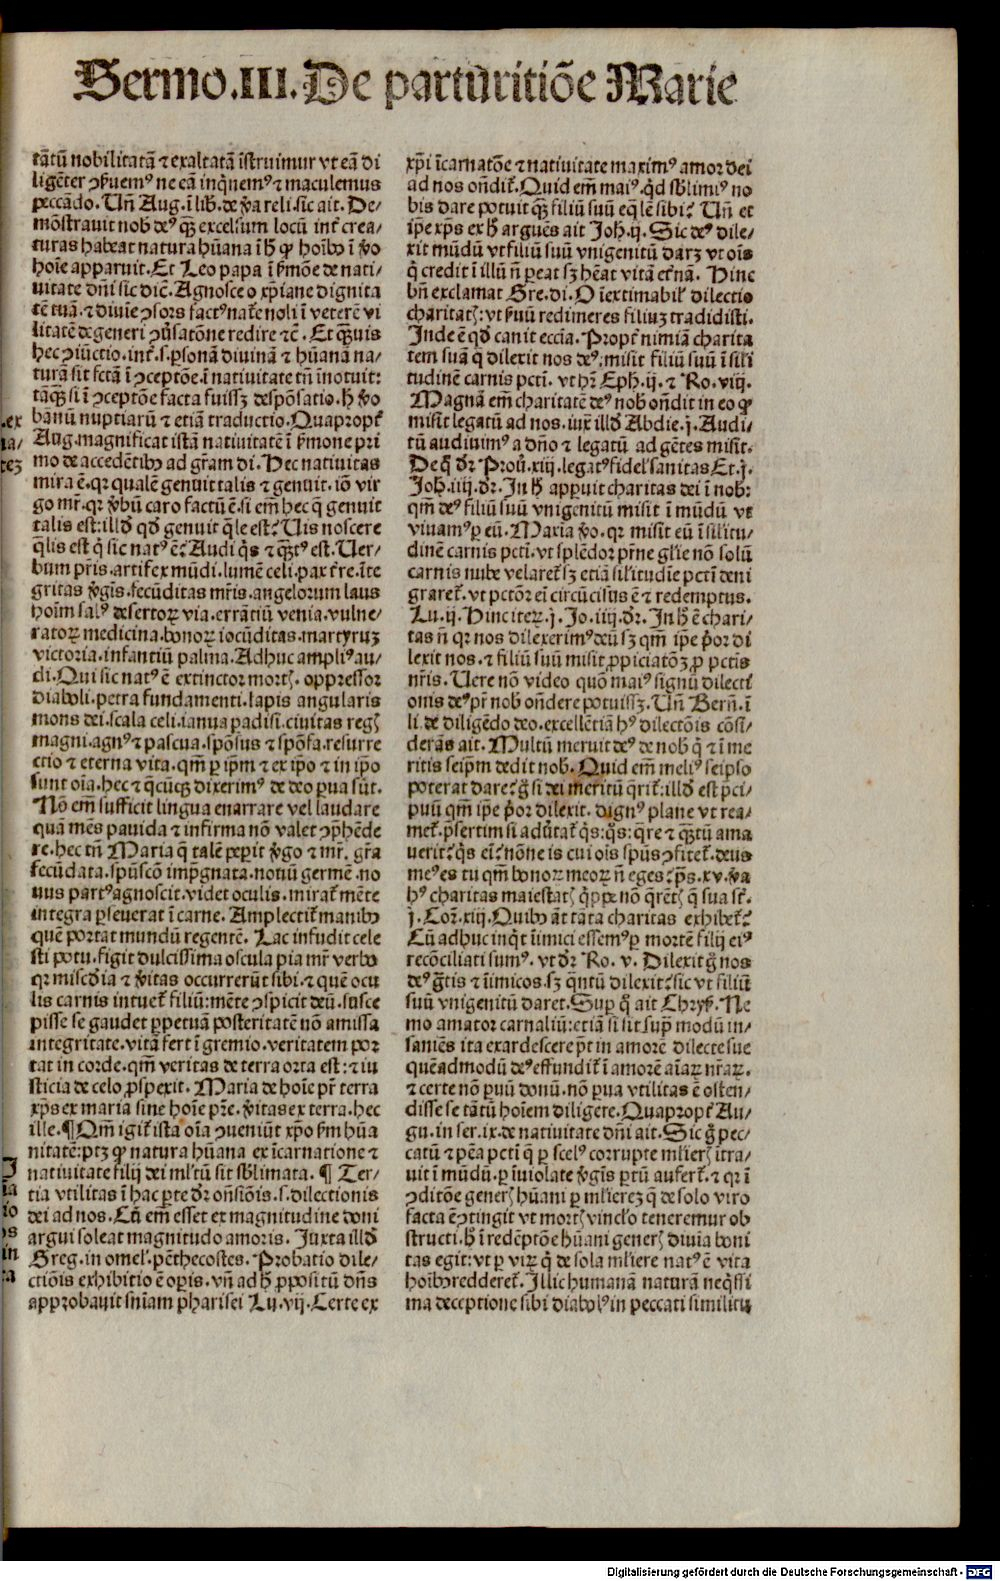 Sermo.III.De parturitiōe Marie
tātū nobilitatā ⁊ exaltatā īstruimur vt eā di
ligēter ꝯẜuemꝰ ne eā inq̄nemꝰ ⁊ maculemus
peccādo. Un̄ Aug. ī lib̄. de ꝟa reli. sic ait. De⸗
mōstravit nob̄ deꝰ qꝫ̄ excelsum locū int̄ crea⸗
turas habeat natura hūana ī h̄ ꝙ hoīb⁹ ī ꝟo
hoīe apparuit. Et Leo papa ī ẜmōe de nati⸗
uitate dn̄i sic dic̄. Agnosce o xp̄iane dignita
tē tuā. ⁊ diuīe ꝯsors factꝰ nat̄e noli ī veterē vi
litatē degeneri ꝯūsatōne redire ⁊c̄. Et qꝫ̄uis
hec ꝯiūctio. int̄. s. ꝑsonā divinā ⁊ hūanā na⸗
turā sit fctā ī ꝯceptōe. ī nativitate tn̄ īnotuit:
tāqꝫ̄ si ī ꝯceptōe facta fuissꝫ despōsatio. h̄ ꝟo
bānū nuptiarū ⁊ etiā traductio. Quapropt̄
Aug. magnificat istā nativitatē ī ẜmone pri
mo de accedētib⁹ ad gr̄am di. Hec nativitas
mira ē. qr qualē genuit talis ⁊ genuit. iō vir
go mr̄. qr ꝟbū caro factū ē. si em̄ hec q̄ genuit
talis est: illd̄ qd̄ genuit q̄le est? Uis noscere
q̄lis est q̄ sic natꝰ ē? Audi q̄s ⁊ qꝫ̄tꝰ est. Uer⸗
bum pr̄is. artifex mūdi. lumē celi. pax t̄re. īte
gritas ꝟgīs. fecūditas mr̄is. angelorum laus
hoīm salꝰ desertoꝝ via. errātiū venia. vulne⸗
ratoꝝ medicina. bonoꝝ iocūditas. martyruꝫ
victoria. infantiū palma. Adhuc ampliꝰ au⸗
di. Qui sic natꝰ ē extinctor mort̄. oppressor
diaboli. petra fundamenti. lapis angularis
mons dei. scala celi. ianua padisi. civitas reḡ
magni. agnꝰ ⁊ pascua. spōsus ⁊ spōsa. resurre
ctio ⁊ eterna vita. qm̄ ꝑ ip̄m ⁊ ex ip̄o ⁊ in ip̄o
sunt oīa. hec ⁊ q̄cūqꝫ dixerimꝰ de deo ꝑua sūt.
Nō em̄ sufficit lingua enarrare vel laudare
quā mēs pavida ⁊ infirma nō valet ꝯp̄hēde
re. hec tn̄ Maria q̄ talē peperit ꝟgo ⁊ mr̄. gr̄a
fecūdata. spūscō imp̄gnata. notiū germē. no
uus partꝰ agnoscit. videt oculis. mirat̄ mēte
integra ꝑseverat ī carne. Amplectit̄ manib⁹
quē portat mundū regentē. Lac infudit cele
sti potu. figit dulcissima oscula pia mr̄ verbo
qr misc̄dia ⁊ ꝟitas occurrerūt sibi. ⁊ quē ocu
lis carnis intuet̄ filiū: mēte ꝯspicit deū. susce
pisse se gaudet ꝑpetuā posteritatē nō amissa
integritate. vitā fert ī gremio. veritatem por
tat in corde. qm̄ veritas de terra orta est: ⁊ iu
sticia de celo ꝓspexit. Maria de hoīe pr̄ terra
xp̄s ex maria sine hoīe pr̄e. ꝟitas ex terra. hec
ille. ¶ Qm̄ igit̄ ista oīa ꝯueniūt xp̄o ẜm hūa
nitatē: ptꝫ ꝙ natura hūana ex īcarnatione ⁊
nativitate filij dei ml̄tū sit sb̄limata. ¶ Ter⸗
tia vtilitas ī hac ꝑte dr̄ on̄siōis. s. dilectionis
dei ad nos. Cū em̄ esset ex magnitudine doni
argui soleat magnitudo amoris. Juxta illd̄
Greg. in omel̄. pēthecostes. Probatio dile⸗
ctiōis exhibitio ē oꝑis. vn̄ ad h̄ ꝓpositū dn̄s
approbavit sn̄iam pharisei Lu. vij. Certe ex
xp̄i īcarnatōe ⁊ nativitate maximꝰ amor dei
ad nos on̄dit̄. Quid em̄ maiꝰ. qd̄ sb̄limiꝰ no
bis dare potuit qꝫ̄ filiū suū eq̄lē sibi? Un̄ et
ip̄e xp̄s ex h̄ arguēs ait Joh. ij. Sic deꝰ dile⸗
xit mūdū vt filiū suū vnigenitū darꝫ vt oīs
q̄ credit ī illū n̄ ꝑeat sꝫ hēat vitā et̄nā. Hinc
bn̄ exclamat Gre. di. O īextimabil̄ dilectio
charitat̄: vt ẜuū redimeres filiuꝫ tradidisti.
Inde ē qd̄ canit eccīa. Propt̄ nimiā charita
tem suā q̄ dilexit nos deꝰ: misit filiū suū ī sil̄i
tudinē carnis pcti̅. vt hr̄ Eph. ij. ⁊ Ro. viij.
Magnā em̄ charitatē deꝰ nob̄ on̄dit in eo ꝙ
misit legatū ad nos. iux̄ illd̄ Abdie. j. Audi⸗
tū audivimꝰ a dn̄o ⁊ legatū ad gētes misit.
De q̄ dr̄ Prou̅. xiij. legatꝰ fidel̄ sanitas Et. j.
Joh. iiij. dr̄. In h̄ apꝑuit charitas dei ī nob̄:
qm̄ deꝰ filiū suū vnigenitū misit ī mūdū vt
vivamꝰ ꝑ eū. Maxīa ꝟo. qr misit eū ī sil̄itu⸗
dinē carnis pcti̅. vt splēdor pr̄ne gl̄ie nō solū
carnis nube velaret̄ sꝫ etiā sil̄itudīe pcti̅ deni
graret̄. vt pctōr eī circūcisus ē ⁊ redemptus.
Lu. ij. Hinc iteꝝ. j. Jo. iiij. dr̄. In h̄ ē chari⸗
tas n̄ qr nos dilexerimꝰ deū sꝫ qm̄ ip̄e p̄or di
lexit nos. ⁊ filiū suū misit ꝓpiciatōꝫ ꝓ pctīs
nr̄is. Uere nō video quō maiꝰ signū dilecti̅
onis deꝰ pr̄ nob̄ on̄dere potuissꝫ. Un̄ Bern̄. ī
li. de diligēdo deo. excellētiā hꝰ dilectōis cōsi⸗
derās ait. Multū meruit deꝰ de nob̄ q̄ ⁊ ī me
ritis seip̄m dedit nob̄. Quid em̄ meliꝰ seipso
poterat dare? g̊ si dei meritū q̄rit̄: illd̄ est p̄ci⸗
puū qm̄ ip̄e p̄or dilexit. dignꝰ plane vt rea⸗
met̄. p̄sertim si adūtat̄ q̄s: q̄s: q̄re ⁊ qꝫ̄tū ama
verit? q̄s eī? nōne is cui oīs spūs ꝯfitet̄. deus
meꝰ es tu qm̄ bonoꝝ meoꝝ n̄ eges? ps̄. xv. ꝟa
hꝰ charitas maiestat̄ q̄ppe nō q̄rēt̄ q̄ sua st̄.
j. Cor̄. xiij. Quib⁹ āt tāta charitas exhibet̄?
Cū adhuc inq̄t īimici essemꝰ ꝑ mortē filij eiꝰ
recōciliati sumꝰ. vt dr̄ Ro. v. Dilexit g̊ nos
deꝰ gr̄tis ⁊ īimicos. sꝫ q̄ntū dilexit? sic vt filiū
suū vnigenitū daret. Suꝑ q̊ ait Chryẜ. Ne
mo amator carnaliū: etiā si sit sup̄ modū in⸗
saniēs ita exardescere p̄t in amorē dilecte sue
quēadmodū deꝰ effundit̄ ī amorē aīaꝝ nr̄aꝝ.
⁊ certe nō ꝑuū donū. nō ꝑua vtilitas ē ostēn⸗
disse se tātū hoīem diligere. Quapropt̄ Au⸗
gu. in ser. ix. de nativitate dn̄i ait. Sic g̊ pec⸗
catū ⁊ pēa pcti̅ q̄ ꝑ scelꝰ corrupte ml̄ier̄ itra⸗
uit ī mūdū. ꝑ īuiolate ꝟgīs ꝑtū aufert̄. ⁊ qr ī
ꝯditōe gener̄ hūani ꝑ ml̄iereꝫ q̄ de solo viro
facta ē ꝯtingit vt mort̄ vincl̄o teneremur ob
structi. h̄ ī redēptōe hūani gener̄ divīa boni
tas egit: vt ꝑ viꝝ q̄ de sola ml̄iere natꝰ ē vita
hoīb⁹ redderet̄. Illic humanā naturā neq̄ssi
ma deceptione sibi diabolꝰ in peccati similitu
Digitalisierung gefördert durch die Deutsche Forschungsgemeinschaft - DFG